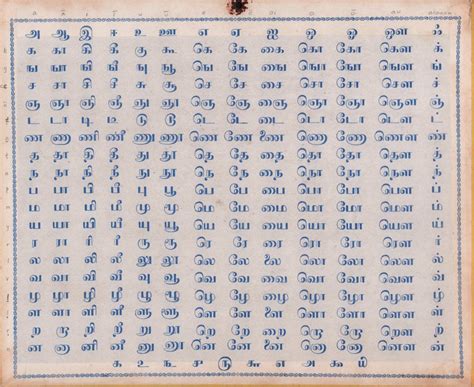 அ ஆ இ ஈ உ ஊ எ ஏ ஐ ஒ ஓ ஔ ஃ
க கா கி கீ கு கூ கெ கே கை கொ கோ கௌ க்
ங ஙா ஙி ஙீ ஙு ஙூ ஙெ ஙே ஙை ஙொ ஙோ ஙௌ ங்
ச சா சி சீ சு சூ செ சே சை சொ சோ சௌ ச்
ஞ ஞா ஞி ஞீ ஞு ஞூ ஞெ ஞே ஞை ஞொ ஞோ ஞௌ ஞ்
ட டா டி டீ டு டூ டெ டே டை டொ டோ டௌ ட்
ண ணா ணி ணீ ணு ணூ ணெ ணே ணை ணொ ணோ ணௌ ண்
த தா தி தீ து தூ தெ தே தை தொ தோ தௌ த்
ந நா நி நீ நு நூ நெ நே நை நொ நோ நௌ ந்
ப பா பி பீ பு பூ பெ பே பை பொ போ பௌ ப்
ம மா மி மீ மு மூ மெ மே மை மொ மோ மௌ ம்
ய யா யி யீ யு யூ யெ யே யை யொ யோ யௌ ய்
ர ரா ரி ரீ ரு ரூ ரெ ரே ரை ரொ ரோ ரௌ ர்
ல லா லி லீ லு லூ லெ லே லை லொ லோ லௌ ல்
வ வா வி வீ வு வூ வெ வே வை வொ வோ வௌ வ்
ழ ழா ழி ழீ ழு ழூ ழெ ழே ழை ழொ ழோ ழௌ ழ்
ள ளா ளி ளீ ளு ளூ ளெ ளே ளை ளொ ளோ ளௌ ள்
ற றா றி றீ று றூ றெ றே றை றொ றோ றௌ ற்
ன னா னி னீ னு னூ னெ னே னை னொ னோ னௌ ன்
௧ ௨ ௩ ௪ ௫ ௬ ௭ ௮ ௯ ௰